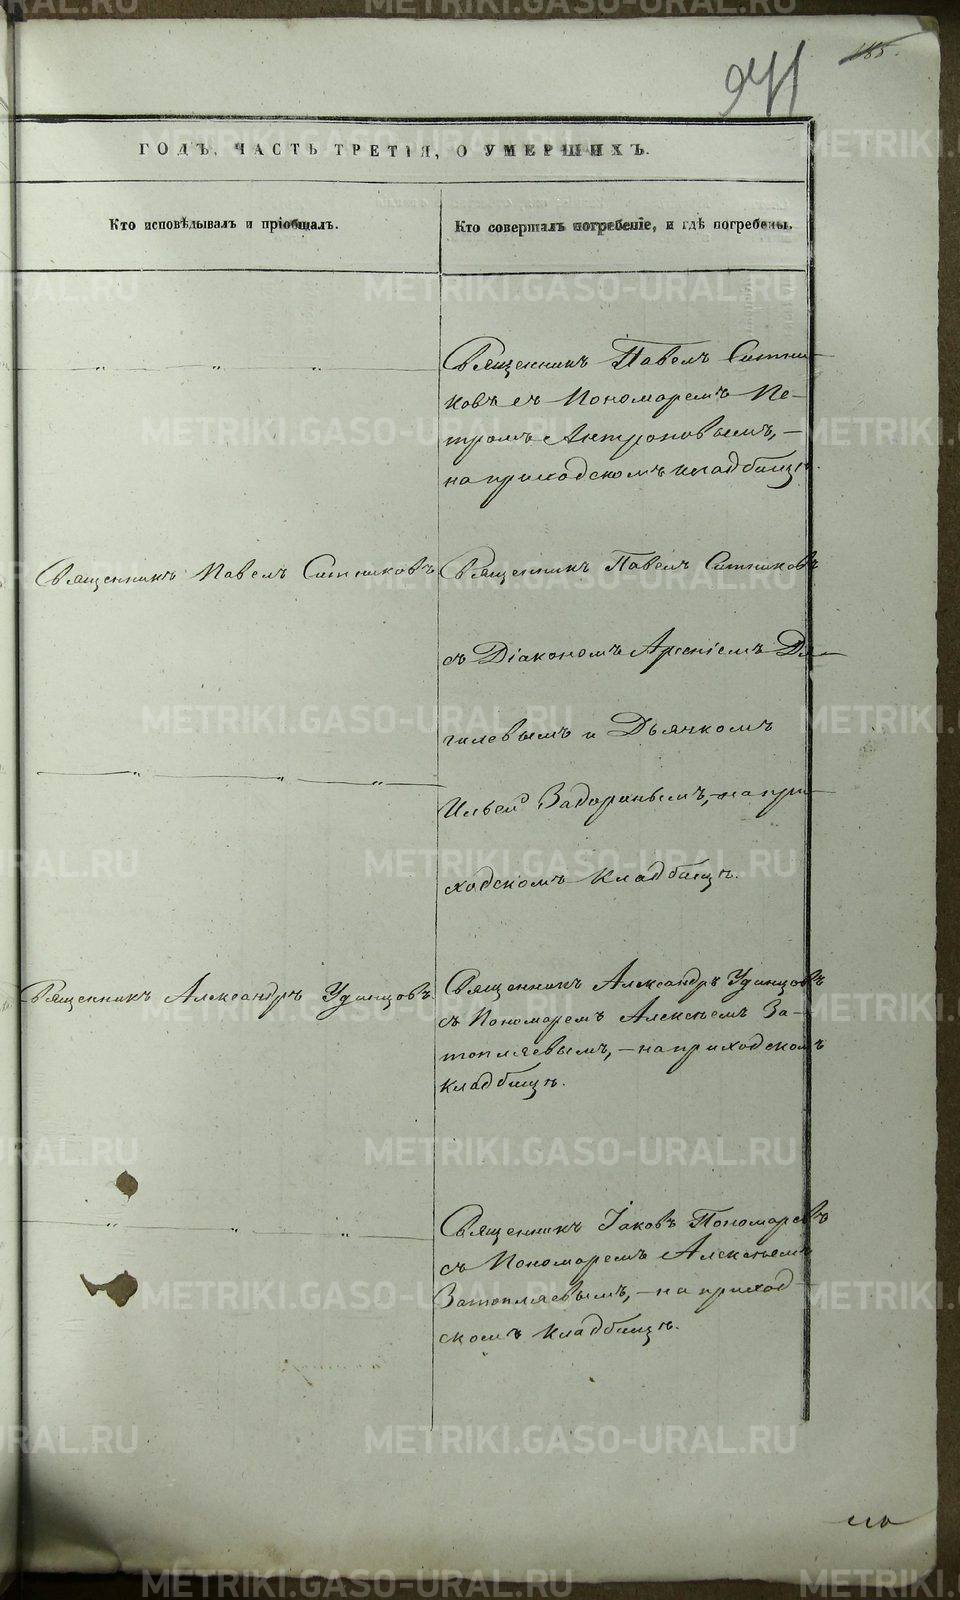 185.
ГОДЪ, ЧАСТЬ ТРЕТІЯ, О УМЕРШИХЪ.
Кто исповѣдывалъ и пріобщалъ.
Кто совершалъ погребеніе, и гдѣ погребены.
Священникъ Павелъ Ситни-
ковъ съ Пономаремъ Пе-
тромъ Антроповымъ,-
на приходскомъ кладбищѣ.
Священникъ Павелъ Ситниковъ
Священникъ Павелъ Ситниковъ
съ Діакономъ Арсеніемъ Дя-
гилевымъ и Дьячкомъ
Ильей Задоринымъ,-на при-
ходскомъ кладбищѣ.
Священникъ Александръ Удинцовъ.
Священникъ Александръ Удинцовъ
съ Пономаремъ Алексѣемъ За-
топляевымъ,-на приходскомъ
кладбищѣ.
Священникъ Іаковъ Пономаревъ
съ Пономаремъ Алексѣемъ
Затопляевымъ,-на приход-
скомъ кладбищѣ.
METRIKI.GASO-URAL.RU